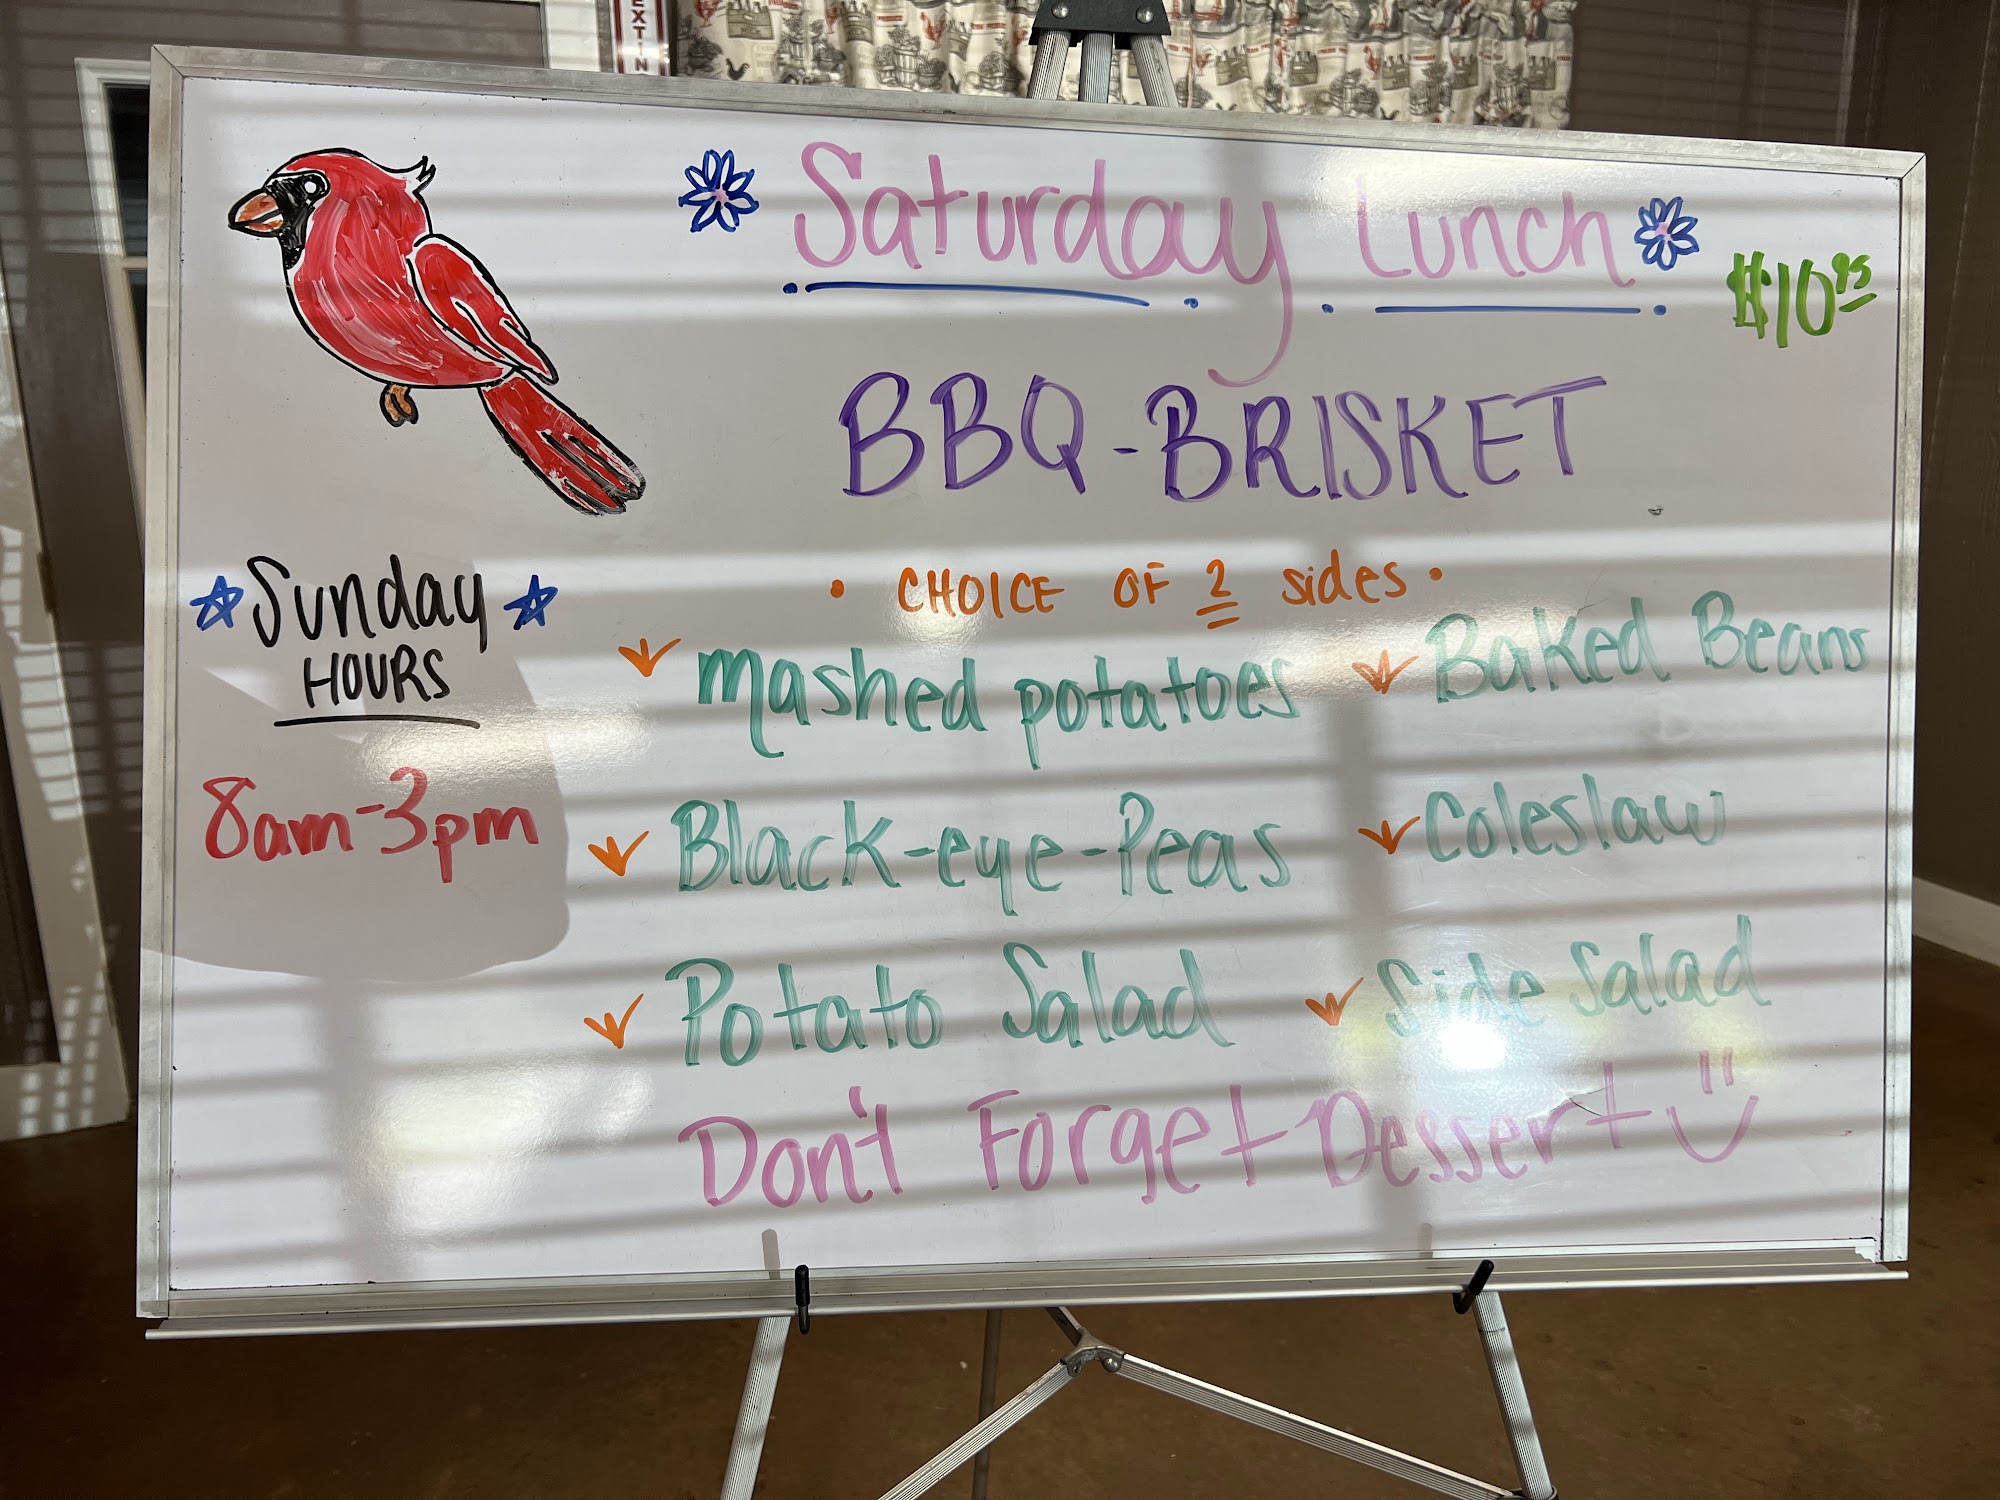 EXTIN
Saturday Lunch
$10.95
BBQ-BRISKET
• CHOICE OF 2 sides •
mashed potatoes
Baked Beans
Black-eye-Peas
Coleslaw
Potato Salad
Side Salad
Don't Forget Dessert
Sunday
HOURS
8am-3pm